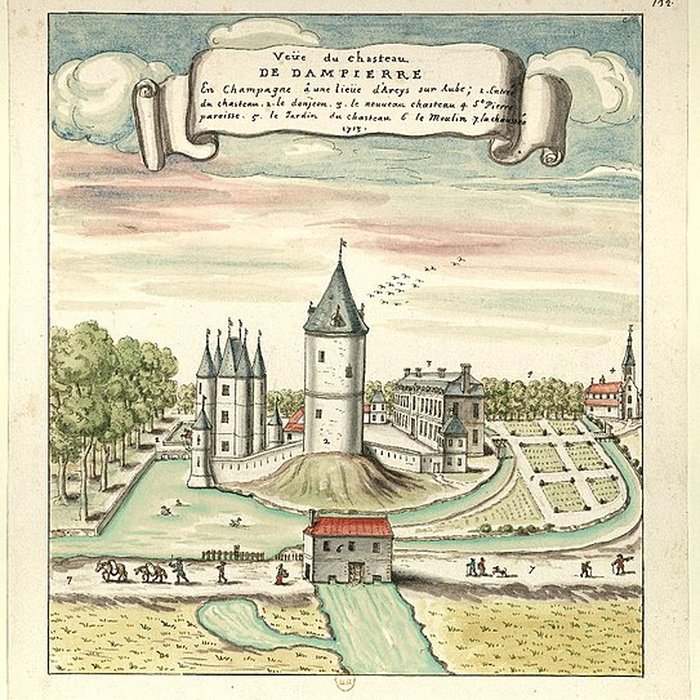 132.
Veüe du Chasteau
DE DAMPIERRE
En Champagne à une lieüe d'Arcys sur Aube; 1. Entrée
du chasteau. 2. le donjeon. 3. le nouveau chasteau 4 St. Pierre
paroisse. 5. le Jardin du chasteau 6 le Moulin 7. la chaussée
1713.
3
4
5
2
6
7
7